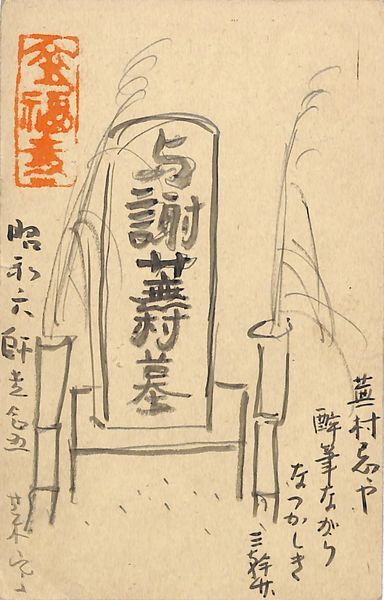 与謝蕪村墓
蕪村忌や
酔筆ながら
なつかしき
三幹竹
昭和六
師走念五